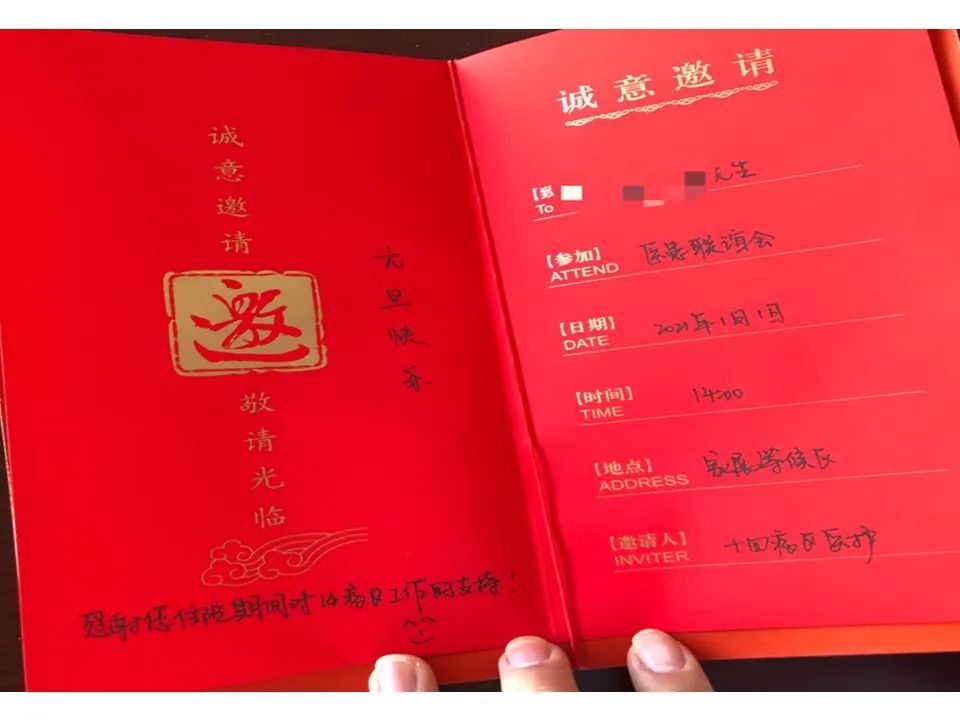 诚意邀请
邀
敬请光临
元旦快乐
感谢您住院期间对14病区工作的支持!
诚意邀请
【致】 先生
To
【参加】 医患联谊会
ATTEND
【日期】 2021年1月1日
DATE
【时间】 14:00
TIME
【地点】 家属等候区
ADDRESS
【邀请人】 十四病区医护
INVITER